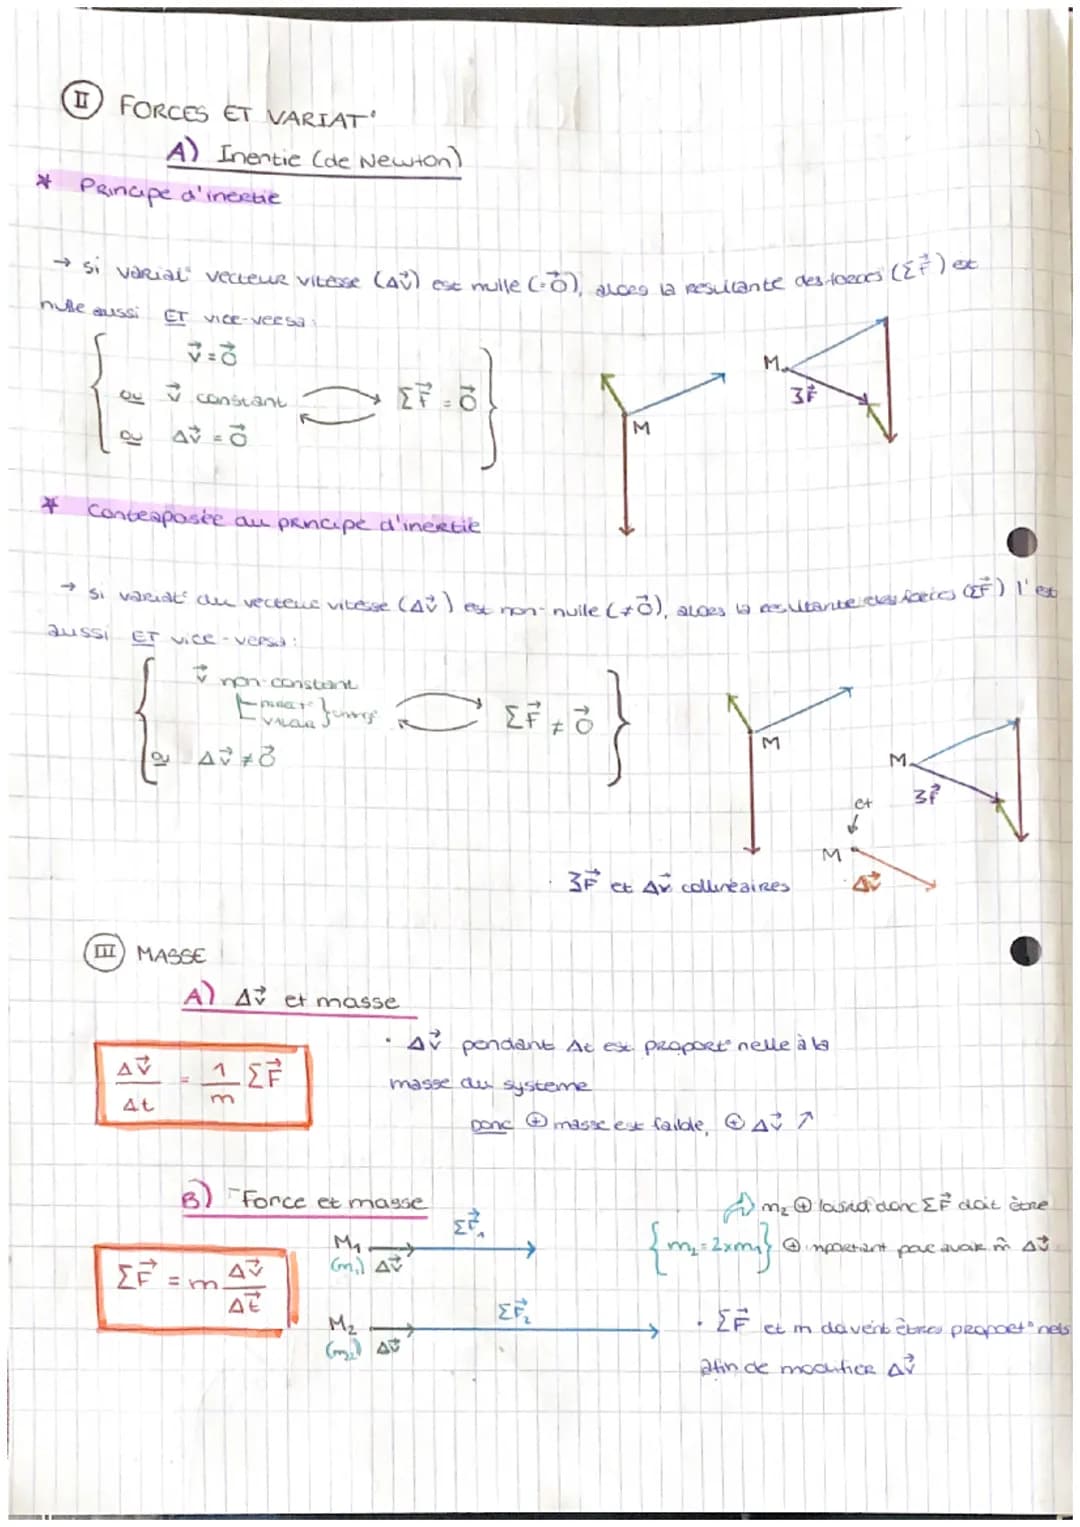 II FORCES ET VARIAT°
A) Inertie (de Newton)
* Principe d'inertie
→ si variat° vecteur vitesse (Δv⃗) est nulle (=0⃗), alors la resultante des forces (ΣF⃗) est
nulle aussi ET vice-versa :
v⃗ = 0⃗
ou v⃗ constant
ΣF⃗ = 0⃗
ou Δv⃗ = 0⃗
M
M
3F⃗
* Contraposée au principe d'inertie
→ si variat° du vecteur vitesse (Δv⃗) est non-nulle (≠0⃗), alors la resultante des forces (ΣF⃗) l'est
aussi ET vice-versa :
v⃗ non-constant
ΣF⃗ ≠ 0⃗
ou Δv⃗ ≠ 0⃗
M
M
3F⃗
et
M
Δv⃗
· 3F⃗ et Δv⃗ collinéaires
III MASSE
A) Δv⃗ et masse
Δv⃗/Δt = 1/m ΣF⃗
· Δv⃗ pendant Δt est proport°nelle à la
masse du systeme
donc ⊕ masse est faible, ⊕ Δv⃗ ↗
B) Force et masse
ΣF⃗ = m Δv⃗/Δt⃗
M₁ (m₁) Δv⃗ ΣF⃗₁
{m₂ = 2×m₁}
⇨ m₂ ⊕ donc ΣF⃗ doit être
⊕ important avoir m̂ Δv⃗
M₂ (m₂) Δv⃗ ΣF⃗₂
· ΣF⃗ et m doivent êtres proport°nels
afin de modifier Δv⃗